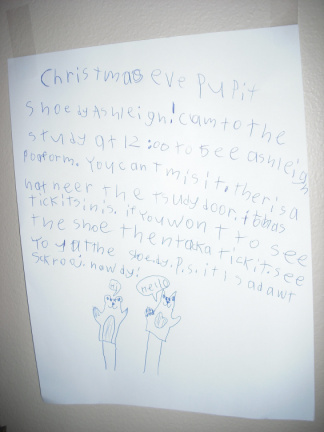 Christmas eve pupit
shoe by Ashleigh! cam to the
study at 12:00 to see ashleigh
poform. You can't mis it. ther is a
hat neer the tsudy door. it has
tickits in is. if you wont to see
the shoe then taka tickit. see
Yo yat the shoe by. P.S. it is adawt
Skrooj. nowdy!
hi
hello